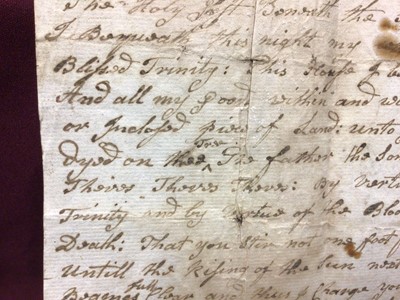 The Holy Gift Beneath the
I Bequeath this night my
Blissed Trinity: This House I be
And all my Good within and wi
or Inclosed piece of Land: unto
dyed on thee Tree The father the Son
Theves Theves Theves: By Vertu
Trinity and by Vertue of the Bloo
Death: That you Stir not one foot f
Untill the Rising of the Sun next
Begines full Clear and thus I Charge you